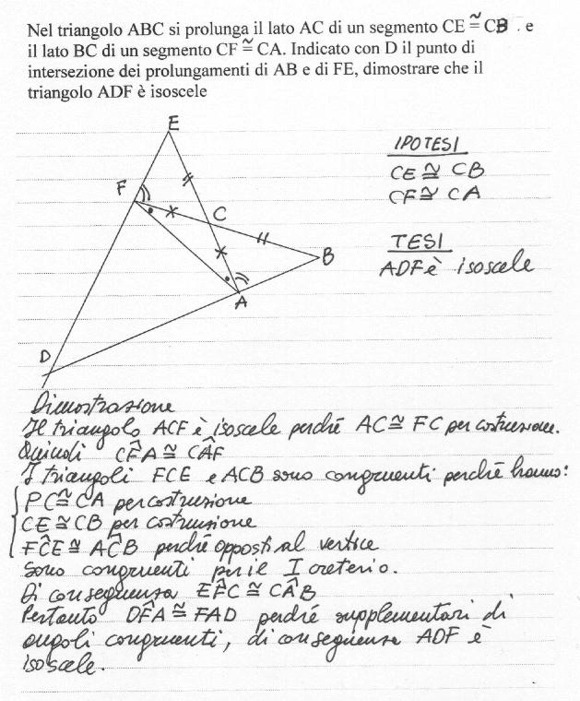 Nel triangolo ABC si prolunga il lato AC di un segmento CE ≅ CB . e
il lato BC di un segmento CF ≅ CA. Indicato con D il punto di
intersezione dei prolungamenti di AB e di FE, dimostrare che il
triangolo ADF è isoscele
E
F
C
B
A
D
IPOTESI
CE ≅ CB
CF ≅ CA
TESI
ADF è isoscele
Dimostrazione
Il triangolo ACF è isoscele perché AC ≅ FC per costruzione.
Quindi CF̂A ≅ CÂF
I triangoli FCE e ACB sono congruenti perché hanno:
PC ≅ CA per costruzione
CE ≅ CB per costruzione
FĈE ≅ AĈB perché opposti al vertice
Sono congruenti per il I creterio.
Di conseguenza EF̂C ≅ CÂB
Pertanto DF̂A ≅ FAD perché supplementari di
angoli congruenti, di conseguenza ADF è
isoscele.